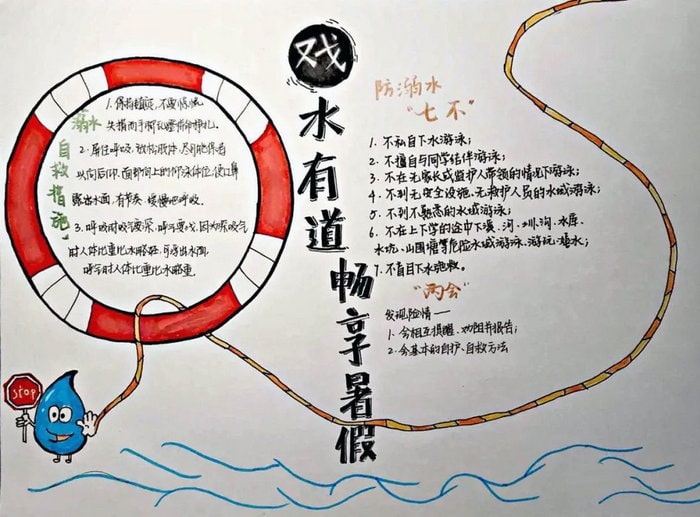 戏水有道畅享暑假
溺水
自救措施
1. 保持镇静,不要惊慌
失措而手脚乱蹬拼命挣扎。
2. 屏住呼吸,放松肢体,尽可能保持
以向后仰、面部向上的仰泳体位,使口鼻
露出水面,有节奏、缓慢地呼吸。
3. 呼吸时吸气要深,呼气要浅,因为深吸气
时人体比重比水略轻,可浮出水面,
呼气时人体比重比水略重。
STOP
防溺水
“七不”
1. 不私自下水游泳;
2. 不擅自与同学结伴游泳;
3. 不在无家长或监护人带领的情况下游泳;
4. 不到无安全设施、无救护人员的水域游泳;
5. 不到不熟悉的水域游泳;
6. 不在上下学的途中下溪、河、圳、沟、水库、
水坑、山围塘等危险水域游泳、游玩、
7. 不盲目下水施救。
“两会”
发现险情——
1. 会相互提醒、劝阻并报告;
2. 会基本的自护、自救方法